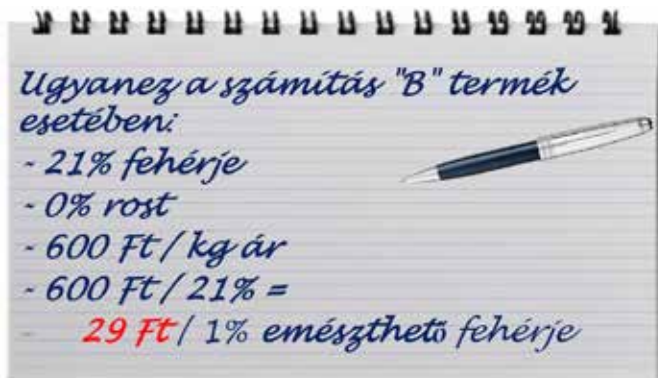 Ugyanez a számítás "B" termék
esetében:
- 21% fehérje
- 0% rost
- 600 Ft / kg ár
- 600 Ft / 21% =
- 29 Ft / 1% emészthető fehérje